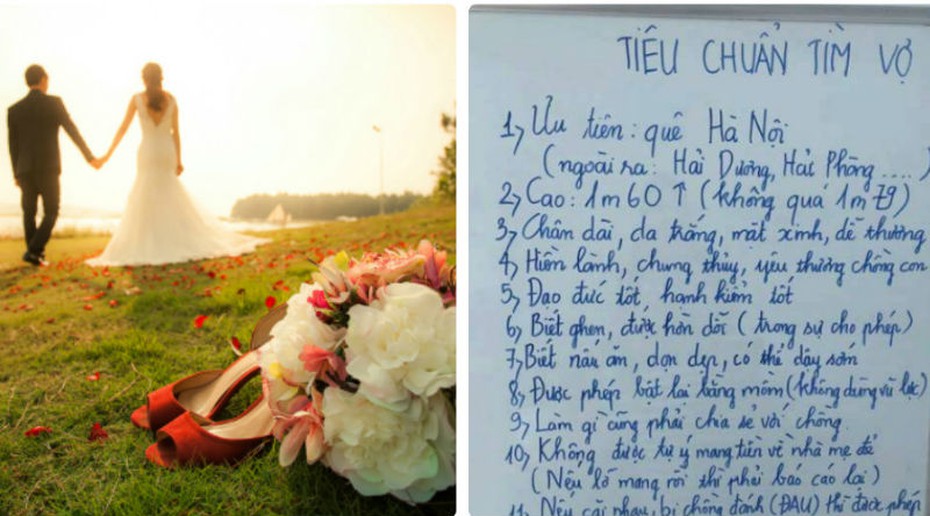 TIÊU CHUẨN TÌM VỢ
1, Ưu tiên: quê Hà Nội
(ngoài ra: Hải Dương, Hải Phòng ....)
2, Cao: 1m60 ↑ (không quá 1m79)
3, Chân dài, da trắng, mặt xinh, dễ thương
4, Hiền lành, chung thủy, yêu thương chồng con
5, Đạo đức tốt, hạnh kiểm tốt
6, Biết ghen, được hờn dỗi (trong sự cho phép)
7, Biết nấu ăn, dọn dẹp, có thể dậy sớm
8, Được phép bật lại bằng mồm (không dùng vũ lực)
9, Làm gì cũng phải chia sẻ với chồng.
10, Không được tự ý mang tiền về nhà mẹ đẻ
(Nếu lỡ mang rồi thì phải báo cáo lại)
11, Nếu cãi nhau, bị chồng đánh (ĐAU) thì được phép